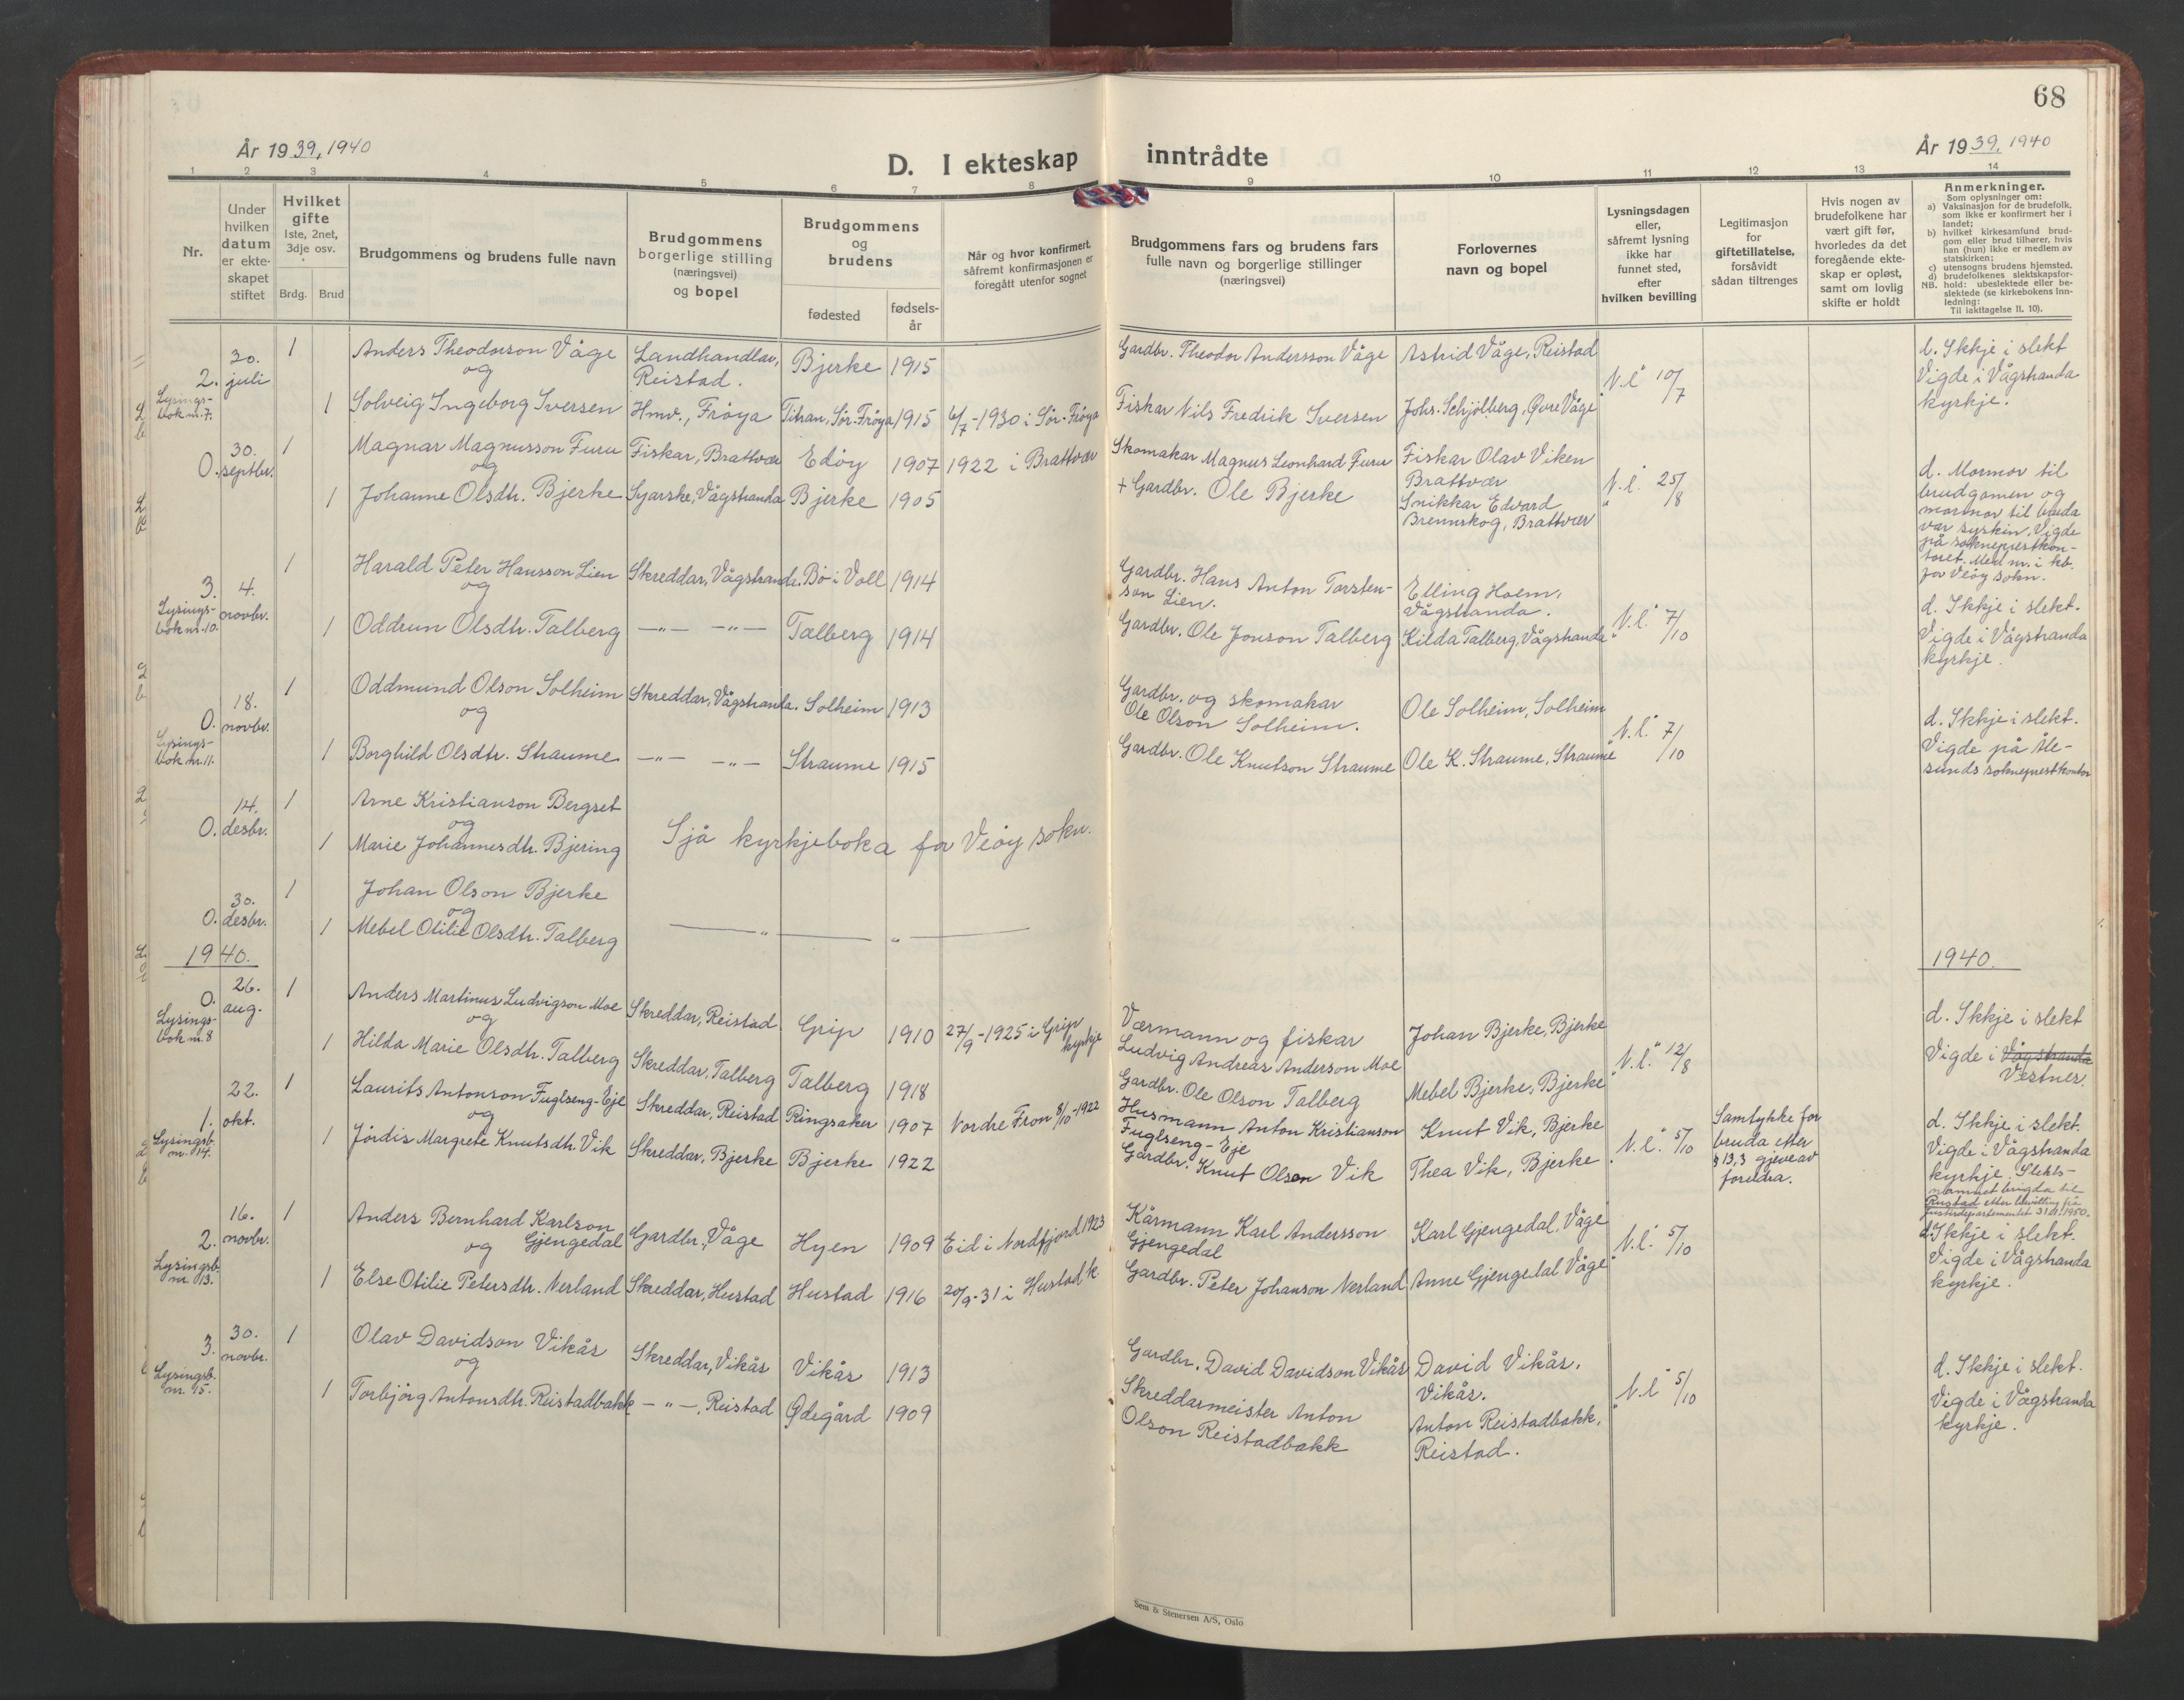 68
År 1939, 1940
D. I ekteskap inntrådte
År 1939, 1940
1 2 3 4 5 6 7 8 9 10 11 12 13 14
Nr.
Under hvilken datum er ekteskapet stiftet
Hvilket gifte 1ste, 2net, 3dje osv.
Brdg. Brud
Brudgommens og brudens fulle navn
Brudgommens borgerlige stilling (næringsvei) og bopel
Brudgommens og brudens
fødested
fødsels-år
Når og hvor konfirmert, såfremt konfirmasjonen er foregått utenfor sognet
Brudgommens fars og brudens fars fulle navn og borgerlige stillinger (næringsvei)
Forlovernes navn og bopel
Lysningsdagen eller, såfremt lysning ikke har funnet sted, efter hvilken bevilling
Legitimasjon for giftetillatelse, forsåvidt sådan tiltrenges
Hvis nogen av brudefolkene har vært gift før, hvorledes da det foregående ekteskap er opløst, samt om lovlig skifte er holdt
Anmerkninger.
Som oplysninger om:
a) Vaksinasjon for de brudefolk, som ikke er konfirmert her i landet;
b) hvilket kirkesamfund brudgom eller brud tilhører, hvis han (hun) ikke er medlem av statskirken;
c) utensogns brudens hjemsted.
d) brudefolkenes slektskapsforhold: ubeslektede eller beslektede (se kirkebokens innledning:
NB.
Til iakttagelse II. 10).
2. Lysings-bok nr. 7. 30. juli 1 Anders Theodorson Våge Landhandlar, Reistad. Bjerke 1915 Gardbr. Theodor Andersson Våge Astrid Våge, Reistad
og
1 Solveig Ingeborg Iversen Hmv., Frøya Titran, Sør-Frøya 1915 6/7-1930 i Sør-Frøya Fiskar Nils Fredrik Iversen Johs. Schjölberg, Øvre Våge
"N.l." 10/7
d. Ikkje i slekt
Vigde i Vågstranda
kyrkje.
0. 30. septbr. 1 Magnar Magnusson Furu Fiskar, Brattvær Edöy 1907 1922 i Brattvær Skomakar Magnus Leonhard Furu Fiskar Olav Viken Brattvær
og
1 Johanne Olsdtr. Bjerke Syerske, Vågstranda Bjerke 1905 + Gardbr. Ole Bjerke Snikkar Edvard Brennskog, Brattvær
"N.l." 25/8
d. Mormor til
brudgomen og
mormor til bruda
var syskin. Vigde
på sokneprestkon-
toret. Med nr. i kb.
for Veöy sokn.
3. Lysings-bok nr. 10. 4. novbr. 1 Harald Peter Hansson Lien Skreddar, Vågstranda. Bö i Voll 1914 Gardbr. Hans Anton Torsten-son Lien. Elling Hoem, Vågstranda.
og
1 Oddrun Olsdtr. Talberg —"— —"— Talberg 1914 Gardbr. Ole Jonson Talberg Kilda Talberg, Vågstranda
"N.l." 7/10
d. Ikkje i slekt.
Vigde i Vågstranda
kyrkje.
0. Lysings-bok nr. 11. 18. novbr. 1 Oddmund Olson Solheim Skreddar, Vågstranda. Solheim 1913 Gardbr. og skomakar Ole Olson Solheim. Ole Solheim, Solheim
og
1 Borghild Olsdtr. Straume —"— —"— Straume 1915 Gardbr. Ole Knutson Straume Ole K. Straume, Straume
"N.l." 7/10
d. Ikkje i slekt.
Vigde på Åle-
sunds sokneprestkontor
0. 14. desbr. 1 Arne Kristianson Bergset
og
1 Marie Johannesdtr. Bjering
Sjå kyrkjeboka for Veöy sokn.
0. 30. desbr. 1 Johan Olson Bjerke
og
1 Mebel Otilie Olsdtr. Talberg
— " — " —
1940. 1940.
0. Lysings-bok nr. 8 26. aug. 1 Anders Martinus Ludvigson Moe Skreddar, Reistad Grip 1910 27/9-1925 i Grip kyrkje Værmann og fiskar Ludvig Andreas Anderson Moe Johan Bjerke, Bjerke
og
1 Hilda Marie Olsdtr. Talberg Skreddar, Talberg Talberg 1918 Gardbr. Ole Olson Talberg Mebel Bjerke, Bjerke
"N.l." 12/8
d. Ikkje i slekt
Vigde i Vågstranda
Vestnes.
1. Lysingsb. nr. 14. 22. okt. 1 Laurits Antonson Fuglseng-Eje Skreddar, Reistad Ringsaker 1907 Nordre Fron 8/10-1922 Husmann Anton Kristianson Fuglseng-Eje Knut Vik, Bjerke
og
1 Jördis Margrete Knutsdtr. Vik Skreddar, Bjerke Bjerke 1922 Gardbr. Knut Olsen Vik Thea Vik, Bjerke
"N.l." 5/10
Samtykke for
bruda etter
§ 13,3 gjeve av
foreldra.
d. Ikkje i slekt.
Vigde i Vågstranda
kyrkje. Slekts-
namnet brigda til
Rugstad etter bevilling frå
justisdepartementet 31/1 1950.
2. Lysingsb. nr. 13. 16. novbr. 1 Anders Bernhard Karlson Gjengedal Gardbr., Våge Hyen 1909 Eid i Nordfjord 1923 Kårmann Karl Andersson Gjengedal Karl Gjengedal, Våge
og
1 Else Otilie Petersdtr. Nerland Skreddar, Hustad Hustad 1916 20/9-31 i Hustad k Gardbr. Peter Johanson Nerland Anne Gjengedal Våge
"N.l." 5/10
d. Ikkje i slekt.
Vigde i Vågstranda
kyrkje.
3. Lysingsb. nr. 15. 30. novbr. 1 Olav Davidson Vikås Skreddar, Vikås Vikås 1913 Gardbr. David Davidson Vikås David Vikås, Vikås.
og
1 Torbjörg Antonsdtr. Reistadbakk —"—, Reistad Ødegård 1909 Skreddarmeister Anton Olson Reistadbakk Anton Reistadbakk, Reistad.
"N.l." 5/10
d. Ikkje i slekt.
Vigde i Vågstranda
kyrkje.
Sem & Stenersen A/S, Oslo